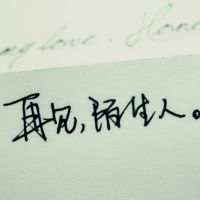 love. Hone
再见,陌生人。